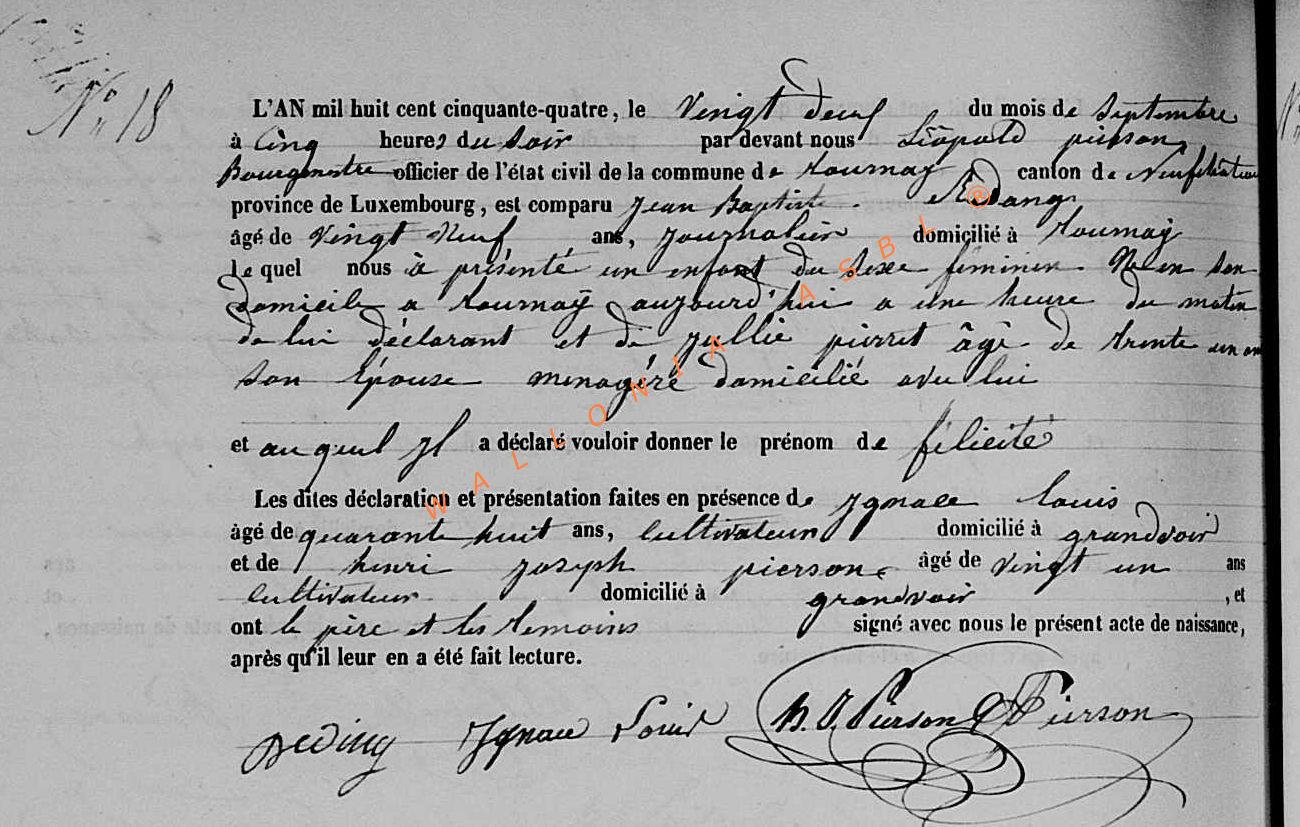 N° 18
L'AN mil huit cent cinquante-quatre, le Vingt deux du mois de Septembre
à Cinq heures du soir par devant nous Léopold pierson
Bourgmestre officier de l'état civil de la commune de tournay canton de Neufchâteau
province de Luxembourg, est comparu Jean Baptiste
âgé de Vingt Neuf ans, journalier domicilié à tournay
le quel nous à présenté un enfant du sexe féminin Né en son
domicile a tournay aujourd'hui a une heure du matin
de lui déclarant et de jullie pierret âgé de trente un an
son Epouse menagére domicilié avec lui
et au quel jl a déclaré vouloir donner le prénom de félicité
Les dites déclaration et présentation faites en présence de Jgnace louis
âgé de quarante huit ans, Cultivateur domicilié à grandvoir
et de henri joseph pierson âgé de vingt un ans
cultivateur domicilié à grandvoir , et
ont le père et les temoins signé avec nous le présent acte de naissance,
après qu'il leur en a été fait lecture.
Jgnace Louis H. J. Pierson Pierson
WALLONIA ASBL ®